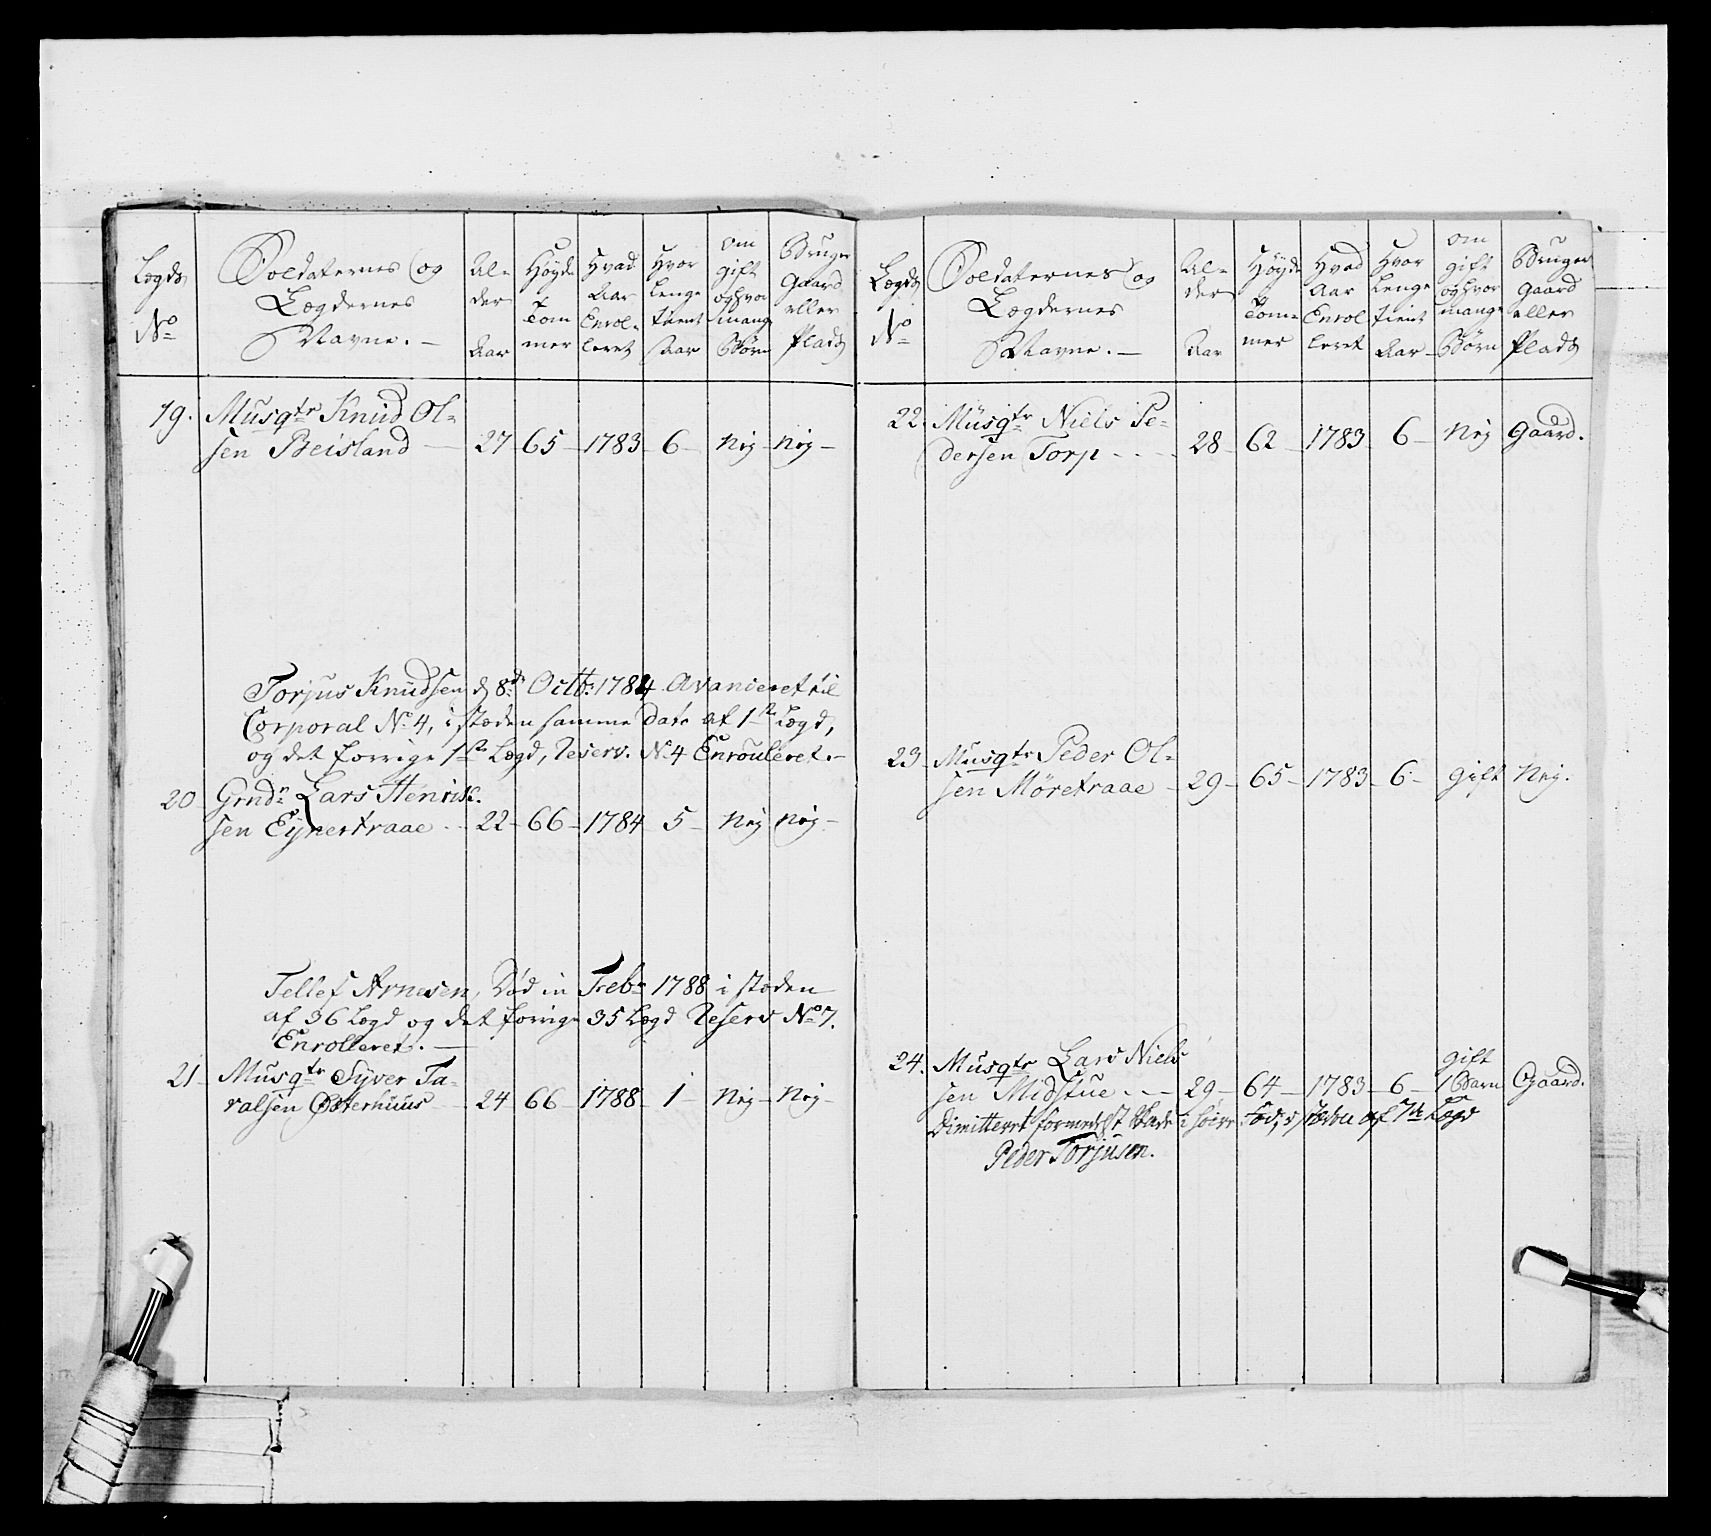 Lægds
No
Soldaternes og
Lægdernes
Navne. —
Al-
der
Aar
Høyde
Tom
mer
Hvad
Aar
Enrol-
leret
Hvor
lenge
tient
Aar
om
gift
og hvor
mange
Børn
Bruger
Gaard
eller
Plads
19. Musqtr Knud Ol-
sen Beisland — 27 — 65 — 1783 — 6 — Nej — Nej —
Torjus Knudsen d 8de Octbr 1784 Avanceret til
Corporal No 4, i stæden samme Dato af 1ste Lægd,
og det forrige 1ste Lægd, Reserv. No 4 Enrouleret. —
20 Grndr Lars Henrik-
sen Eynertraae — 22 — 66 — 1784 5 — Nej Nej —
Tellef Arnesen, Død in Febr 1788 i stæden
af 36 Lægd og det forrige 35 Lægd Reserv No 7.
Enrolleret. —
21 Musqtr Syver Ta-
ralsen Østerhuus — 24 66 — 1788 — 1 — Nej — Nej —
Lægds
No
Soldaternes og
Lægdernes
Navne. —
Al-
der
Aar
Høyde
Tom-
mer
Hvad
Aar
Enrol
leret
Hvor
lenge
tient
Aar —
om
gift
og hvor
mange
Børn
Bruger
Gaard
eller
Plads
22. Musqtr Niels Pe-
dersen Torp - - - 28 — 62 — 1783 6 — Nej Gaard.
23 Musqtr Peder Ol-
sen Møretraae — 29 — 65 — 1783 — 6 — gift Nej.
24. Musqtr Lars Niels
sen Midstue - - — 29 — 64 — 1783 — 6 — gift 1 Barn Gaard.
Dimitteret formedelst Skade i høire Fod, i stæden af 7de Lægd
Peder Torjusen.